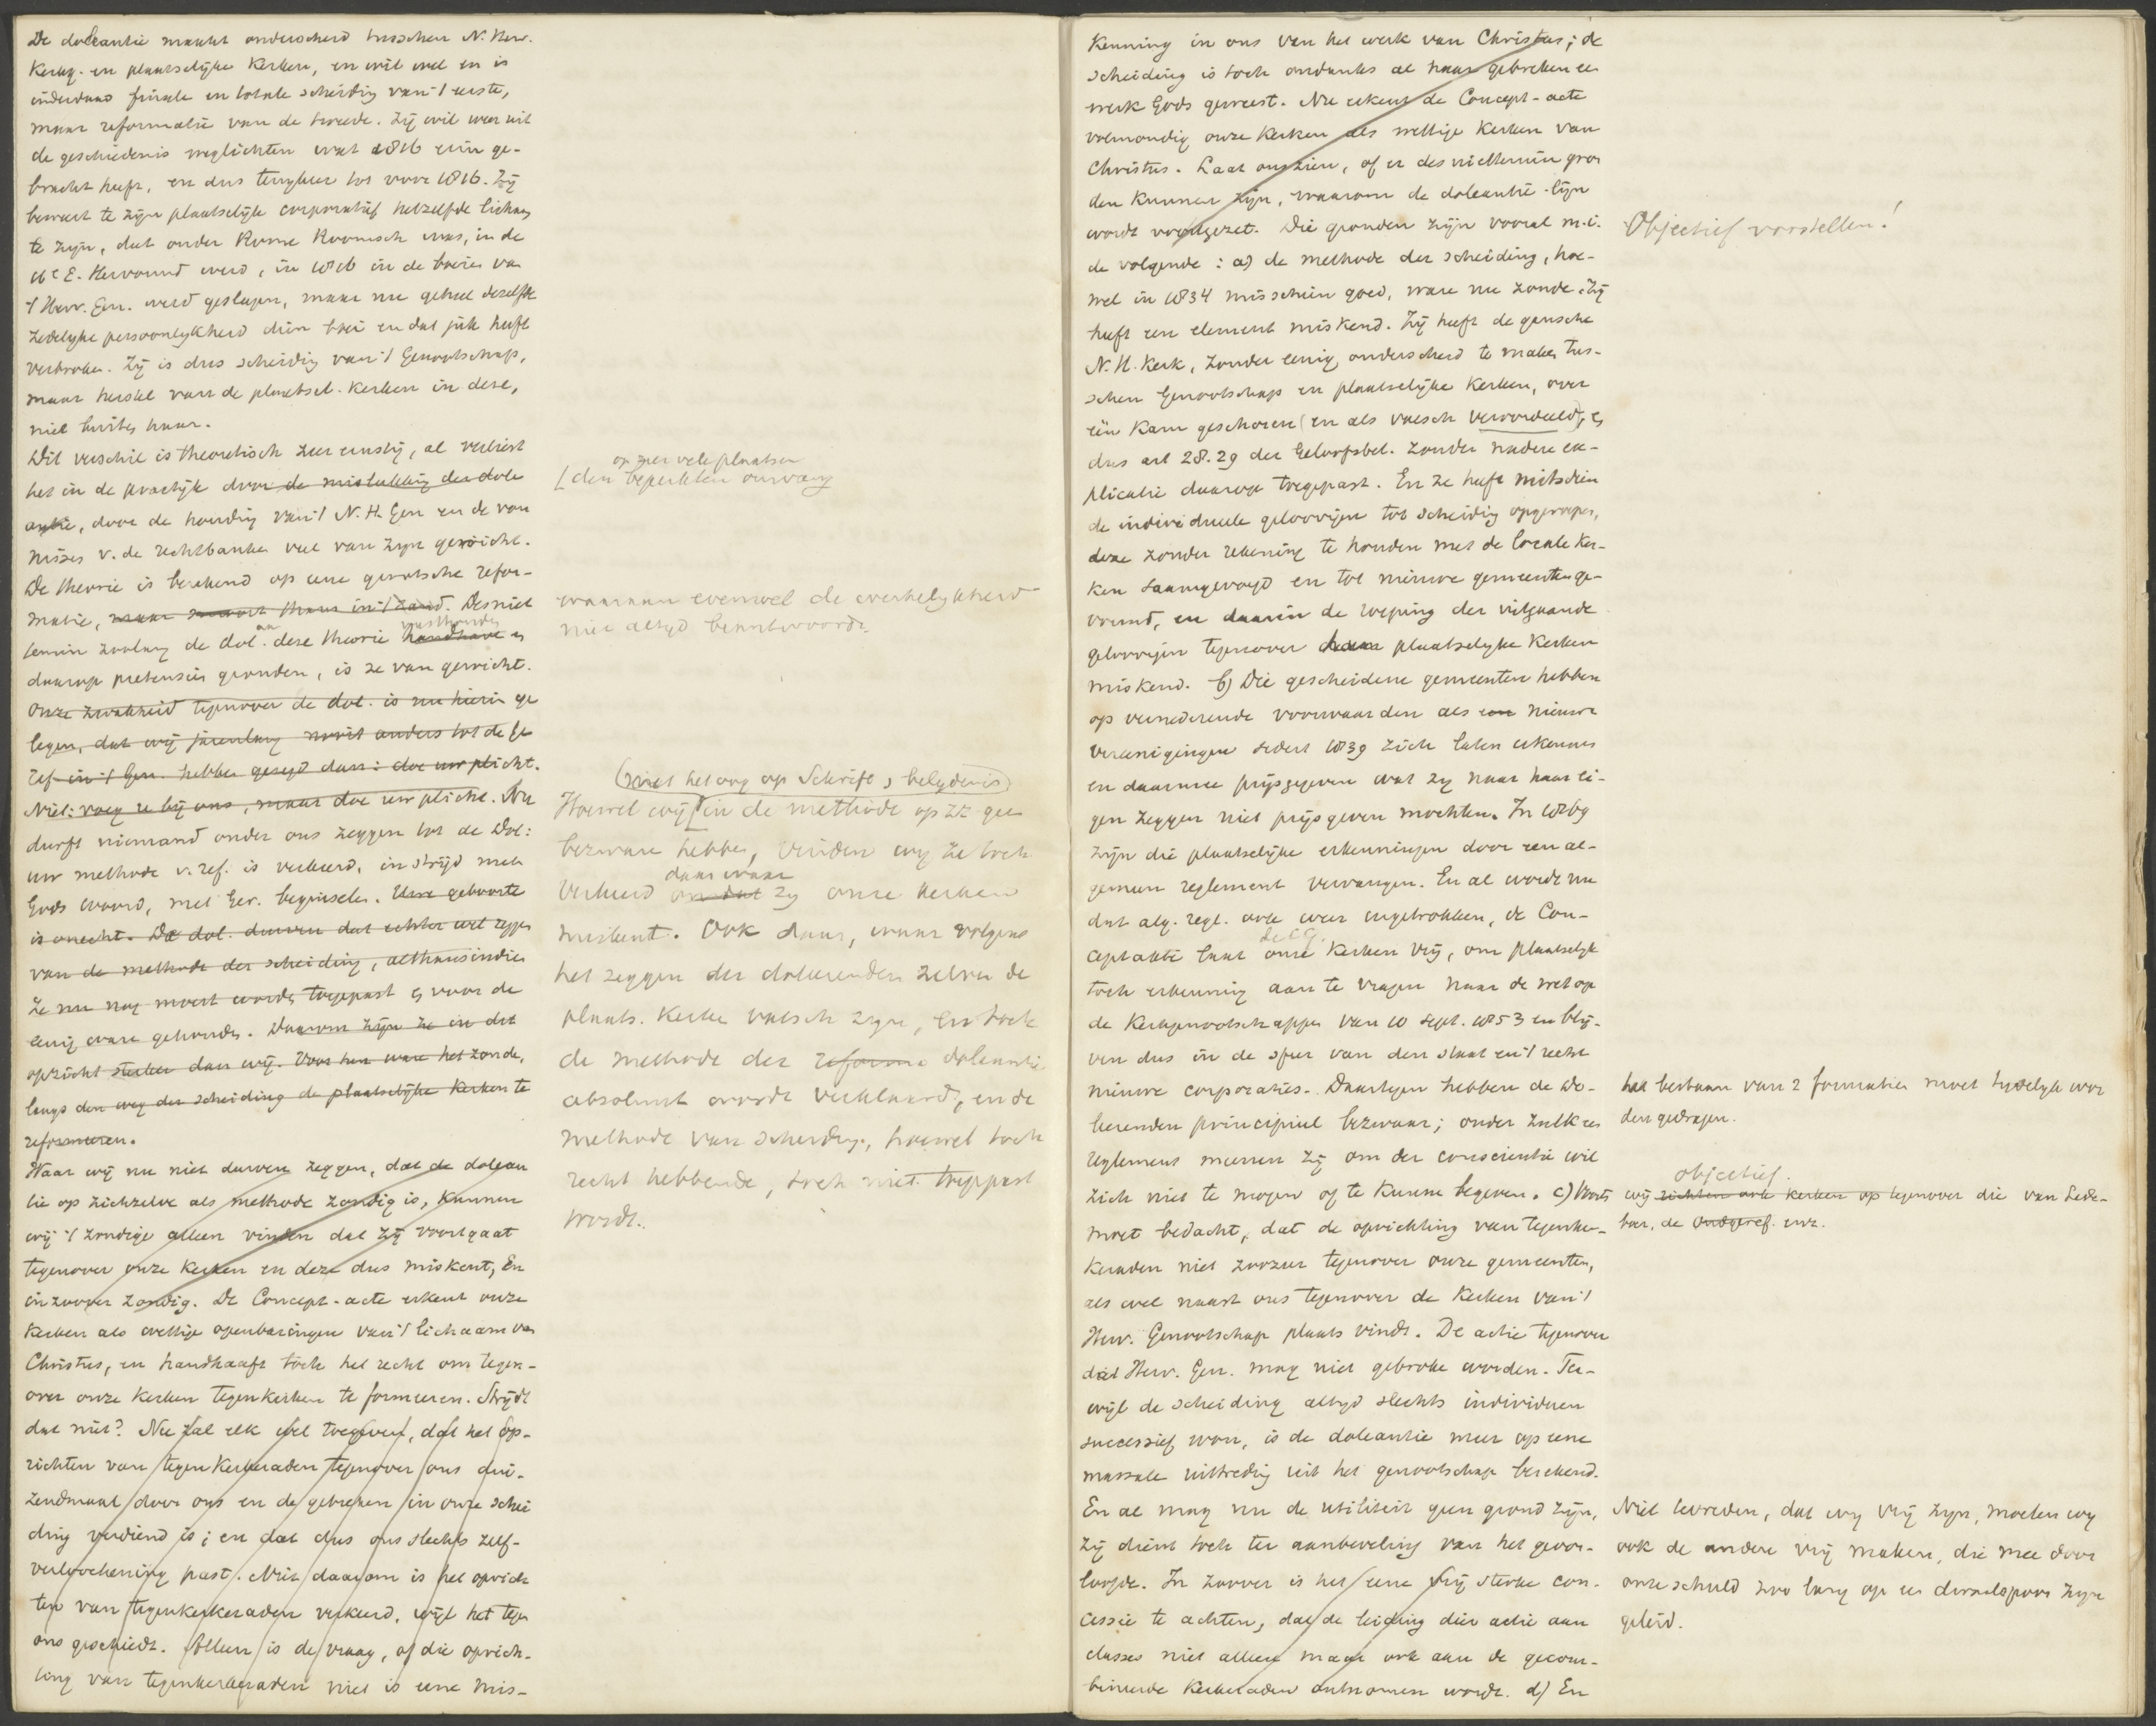 De doleantie maakt onderscheid tusschen N. Herv.
Kerkg. en plaatselijke Kerken, en wil wel en is
inderdaad finale en totale scheidig van 't eerste,
maar reformatie van de tweede. Zij wil weer uit
de geschiedenis weglichten wat 1816 erin ge-
bracht heeft, en dus terugkeer tot voor 1816. Zij
beweert te zijn plaatselijke corporatief hetzelfde lichaam
te zijn, dat onder Rome Roomsch was, in de
16e E. Hervormd werd, in 1816 in de boeien van
't Herv. Gen. werd geslagen, maar nu geheel dezelfde
zedelijke persoonlijkheid dien boei en dat juk heeft
verbroken. Zij is dus scheidig van 't Genootschap,
maar herstel van de plaatsel. Kerken in deze,
niet buiten haar.
Dit verschil is theoretisch zeer ernstig, al verliest
het in de practijk door de mislukking der dole
antie, door de houding van 't N. H. Gen en de von
nissen v. de rechtbanken veel van zijn gewicht.
De theorie is berekend op eene grootsche refor-
matie, maar smoort thans in 't zand. Desniet
temin zoolang de dol. aan deze theorie handhave vasthouden en
daarop pretensies gronden, is ze van gewicht.
Onze zwakheid tegenover de dol. is nu hierin ge
legen, dat wij jarenlang nooit anders tot de Ge
ref in 't Gen. hebben gezegd dan: doe uw plicht.
Niet: voeg u bij ons, maar doe uw plicht. Nu
durft niemand onder ons zeggen tot de Dol:
uw methode v. ref. is verkeerd, in strijd met
Gods woord, met Ger. beginselen. Uwe geboorte
is onecht. De dol. durven dat echter wel zeggen
van de methode der scheiding, althans indien
ze nu nog moest worden toegepast en voor de
eenig ware gehouden. Daarom zijn ze in dit
opzicht sterker dan wij. Voor hen ware het zonde,
langs den weg der scheiding de plaatselijke Kerken te
reformeeren.
Waar wij nu niet durven zeggen, dat de dolean
tie op zichzelve als methode zondig is, kunnen
wij 't zondige alleen vinden dat zij voortgaat
tegenover onze Kerken en deze dus miskent, En
in zoover zondig. De Concept-acte erkent onze
Kerken als wettige openbaringen van 't lichaam van
Christus, en handhaaft toch het recht om tegen-
over onze Kerken tegenkerken te formeeren. Strijdt
dat niet? Nu zal elk wel toegeven, dat het op-
richten van tegenkerkeraden tegenover ons dui-
zendmaal door ons en de gebreken in onze schei
ding verdiend is; en dat dus ons slechts zelf-
verloochening past. Niet daarom is het oprich
ten van tegenkerkeraden verkeerd, wijl het tegen
ons geschiedt. Alleen is de vraag, of die oprich-
ting van tegenkerkeraden niet is eene mis-
op zeer vele plaatsen
[den beperkten omvang
waaraan evenwel de werkelijkheid
niet altijd beantwoordt.
(met het oog op Schrift, belijdenis)
Hoewel wij [in de methode op zz. geen
bezwaar hebben, vinden wij ze toch
verkeerd omdat daar waar zij onze kerken
miskent. Ook daar, waar volgens
het zeggen der doleerenden zelven de
plaats. Kerke valsch zijn, en toch
de methode der reforma doleantie
absoluut wordt verklaard, en de
methode van scheiding, hoewel toch
recht hebbende, toch niet toegepast
wordt.
kenning in ons van het werk van Christus; de
scheiding is toch ondanks al haar gebreken een
werk Gods geweest. Nu erkent de Concept-acte
volmondig onze Kerken als wettige Kerken van
Christus. Laat ons zien, of er desniettemin gron
den kunnen zijn, waarom de doleantie-lijn
wordt voortgezet. Die gronden zijn vooral m.i.
de volgende: a) de methode der scheiding, hoe-
wel in 1834 misschien goed, ware nu zonde. Zij
heeft een element miskend. Zij heeft de gansche
N. H. Kerk, zonder eenig onderscheid te maken tus-
schen Genootschap en plaatselijke Kerken, over
één kam geschoren (en als valsch veroordeeld), en
dus art 28. 29 der Geloofsbel. zonder nadere ex-
plicatie daarop toegepast. En ze heeft mitsdien
de individueele geloovigen tot scheidig opgeroepen,
deze zonder rekening te houden met de locale Ker-
ken saamgevoegd en tot nieuwe gemeenten ge-
vormd, en daarin de roeping der uitgaande
geloovigen tegenover haar plaatselijke Kerken
miskend. b) Die gescheidene gemeenten hebben
op vernederende voorwaarden als een nieuwe
vereenigingen sedert 1839 zich laten erkennen
en daarmee prijsgegeven wat zij naar haar ei-
gen zeggen niet prijsgeven mochten. In 1869
zijn die plaatselijke erkenningen door een al-
gemeen reglement vervangen. En al wordt nu
dat alg. regl. ook weer ingetrokken, de Con-
ceptakte laat onze de C.G. Kerken vrij, om plaatselijk
toch erkenning aan te vragen naar de wet op
de Kerkgenootschappen van 10 Sept. 1853 en blij-
ven dus in de sfeer van den staat en 't recht
nieuwe corporaties. Daartegen hebben de Do-
leerenden principieel bezwaar; onder zulk een
reglement meenen zij om der conscientie wil
zich niet te mogen of te kunnen begeven. c) Voorts
moet bedacht, dat de oprichting van tegenker-
keraden niet zoozeer tegenover onze gemeenten,
als wel naast ons tegenover de Kerken van 't
Herv. Genootschap plaats vindt. De actie tegenover
dat Herv. Gen. mag niet gebroken worden. Ter-
wijl de scheiding altijd slechts individuen
successief won, is de doleantie meer op eene
massale uittreding uit het genootschap berekend.
En al mag nu de utiliteit geen grond zijn,
zij dient toch ter aanbeveling van het gevor-
loofde. In zoover is het eene vrij sterke con-
cessie te achten, dat de leiding dier actie aan
classes niet alleen maar ook aan de gecom-
bineerde Kerkeraden ontnomen wordt. d) En
Objectief voorstellen!
het bestaan van 2 formaties moet tijdelijk wor
den gedragen.
objectief.
wij richten ook kerken op tegenover die van Lede-
boer, de Oudgeref. enz.
Niet tevreden, dat wij vrij zijn, moeten wij
ook de andere vrij maken, die mee door
onze schuld zoo lang op een dwaalspoor zijn
geleid.